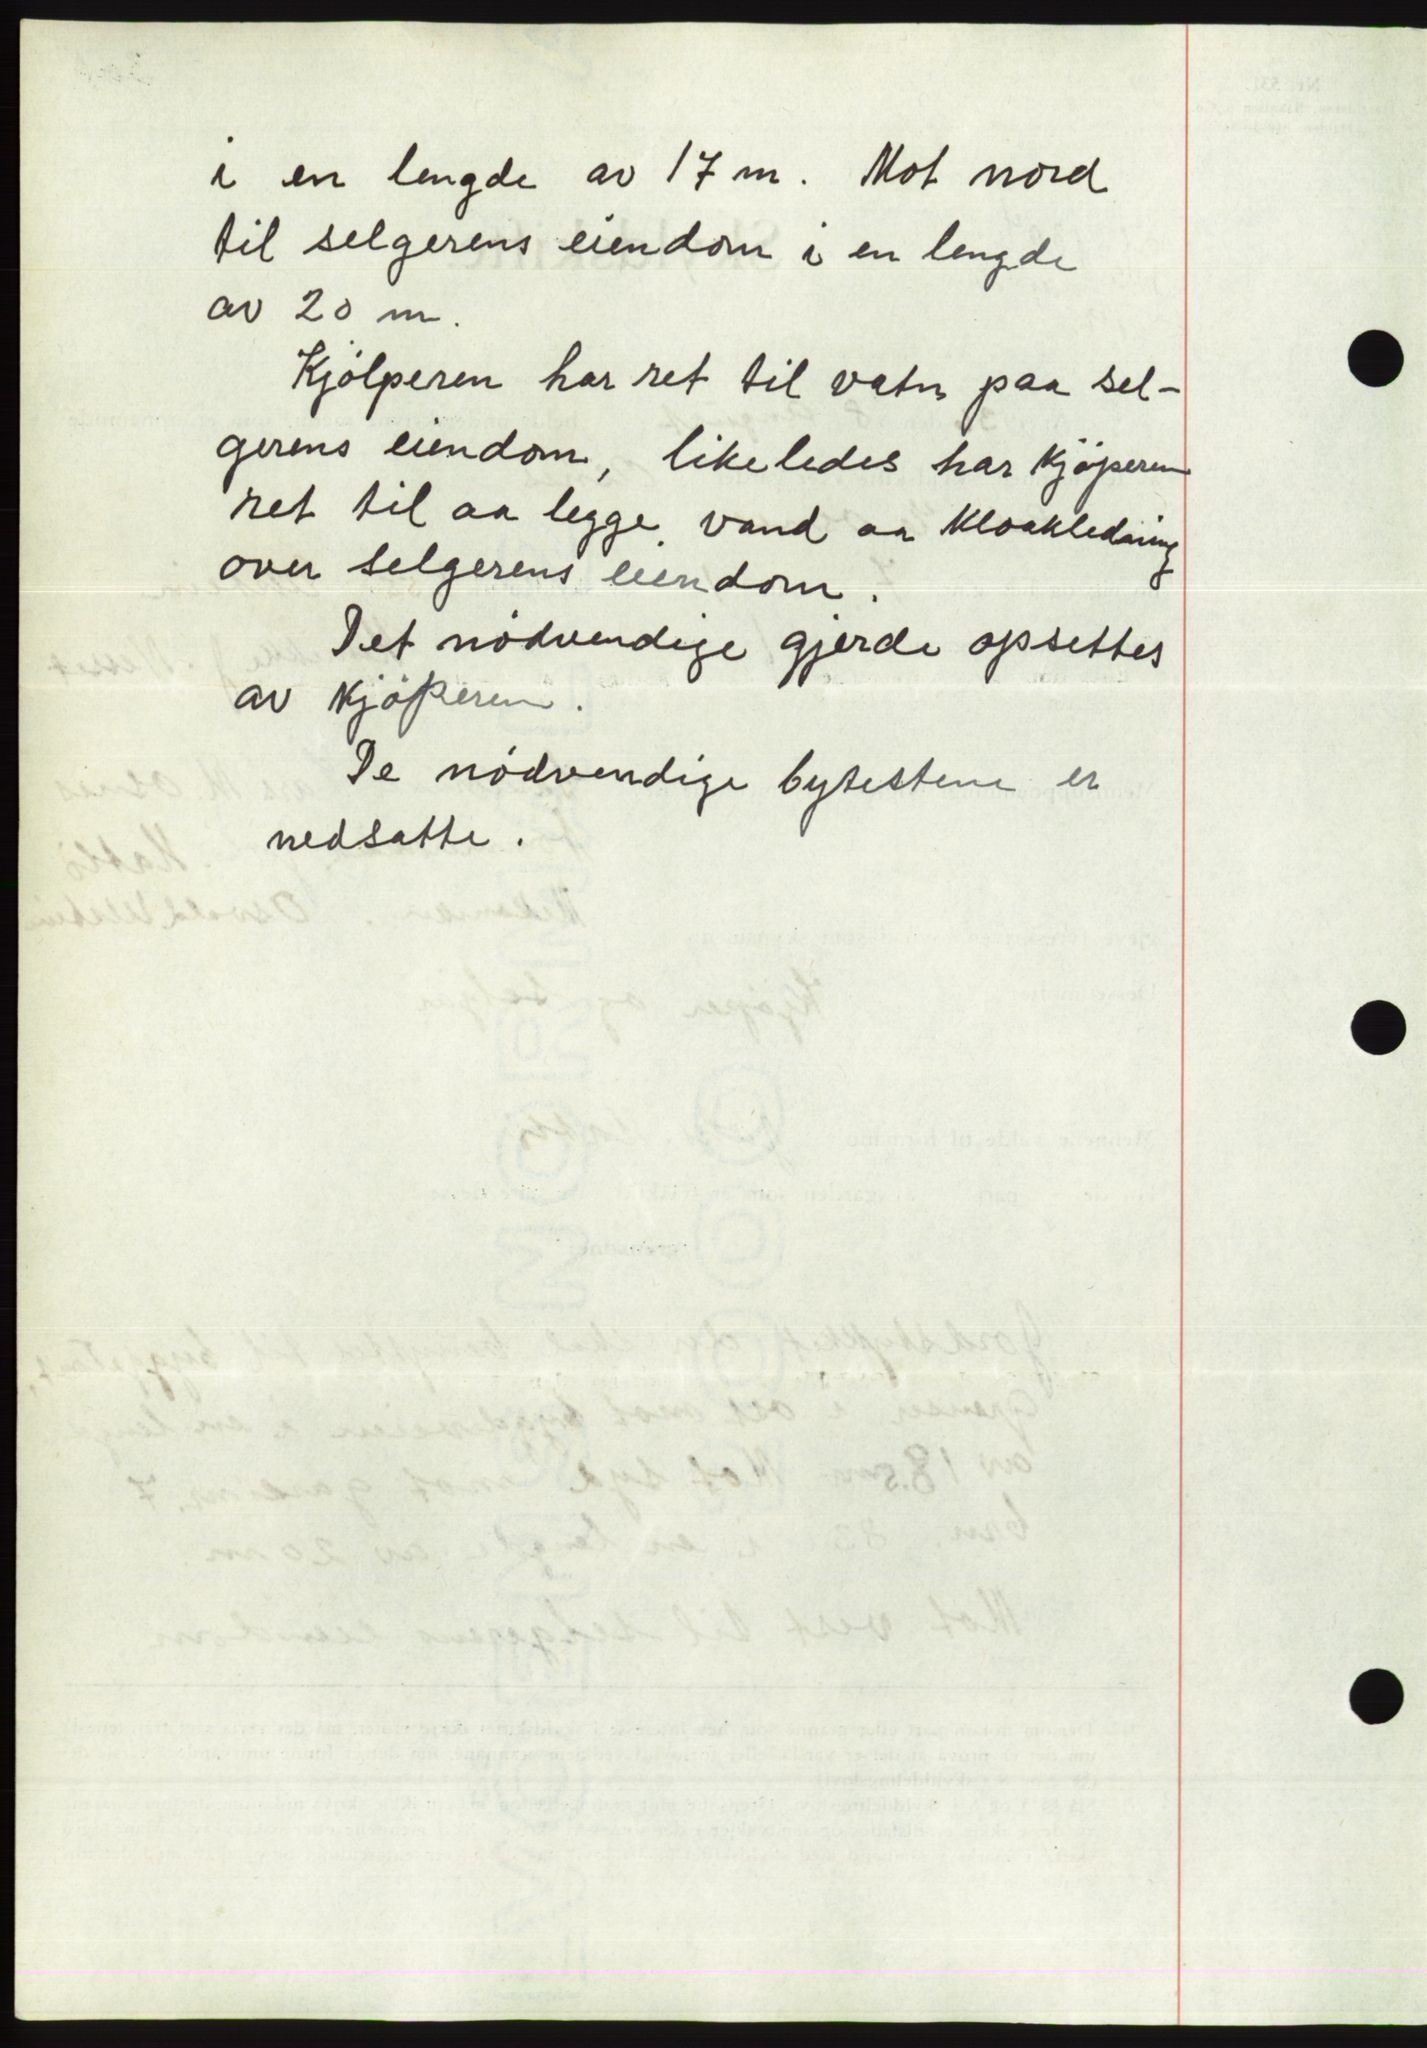 i en lengde av 17 m. Mot nord
til selgerens eiendom i en lengde
av 20 m.
Kjölperen har ret til vatn paa sel-
gerens eiendom, likeledes har kjöperen
ret til aa legge vand aa kloakledning
over selgerens eiendom.
Det nödvendige gjerde opsettes
av kjöperen.
De nödvendige bytestene er
nedsatte.